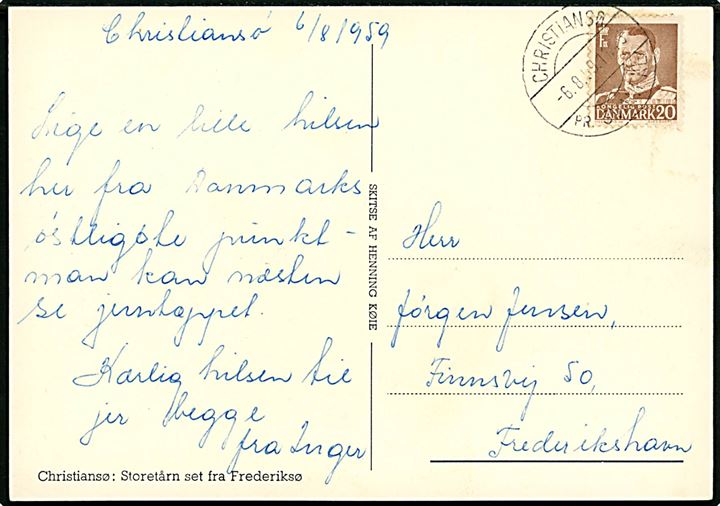 Christiansø 6/8 1959
Lige en lille hilsen
her fra Danmarks
østligste punkt -
man kan næsten
se jerntæppet.
Kærlig hilsen til
jer begge
fra Inger
Christiansø: Storetårn set fra Frederiksø
SKITSE AF HENNING KØIE
CHRISTIANSØ
-6.8.59
PR.
KONGELIG POST
DANMARK 20
Herr
Jørgen Jensen,
Finnsvej 50,
Frederikshavn